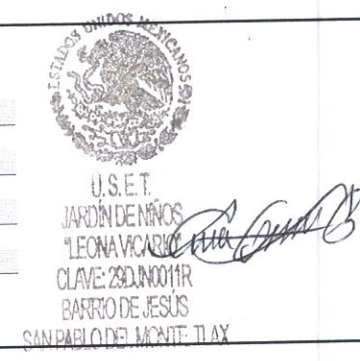 ESTADOS UNIDOS MEXICANOS
U.S.E.T.
JARDÍN DE NIÑOS
"LEONA VICARIO"
CLAVE: 29DJN0011R
BARRIO DE JESÚS
SAN PABLO DEL MONTE, TLAX